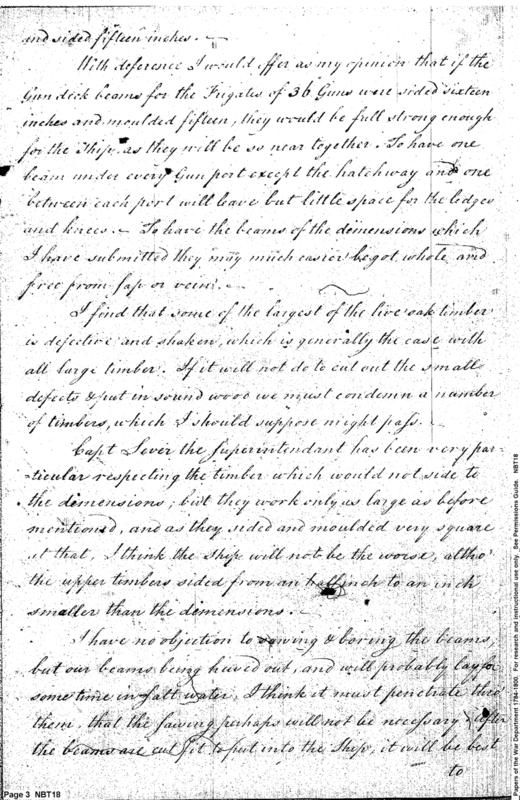 and sided fifteen inches. —
With deference I would offer as my opinion that if the
Gun deck beams for the Frigates of 36 Guns were sided sixteen
inches and moulded fifteen, they would be full strong enough
for the Ship, as they will be so near together. To have one
beam under every Gun port except the hatchway and one
between each port will leave but little space for the ledges
and knees. — To have the beams of the dimensions which
I have submitted they may much easier be got whole and
free from sap or vein. —
I find that some of the largest of the live oak timber
is defective and shaken, which is generally the case with
all large timber. If it will not do to cut out the small
defects & put in sound wood we must condemn a number
of timbers, which I should suppose might pass. —
Capt Sever the Superintendant has been very par-
-ticular respecting the timber which would not side to
the dimensions, but they work only as large as before
mentioned, and as they sided and moulded very square
at that, I think the Ship will not be the worse, altho'
the upper timbers sided from an half inch to an inch
smaller than the dimensions. —
I have no objection to sawing & boring the beams,
but our beams being hewed out, and will probably lay for
some time in salt water, I think it must penetrate thro'
them, that the sawing perhaps will not be necessary, after
the beams are cut fit to put into the Ship, it will be best
to
Page 3 NBT18
Papers of the War Department 1784-1800. For research and instructional use only. See Permissions Guide. NBT18